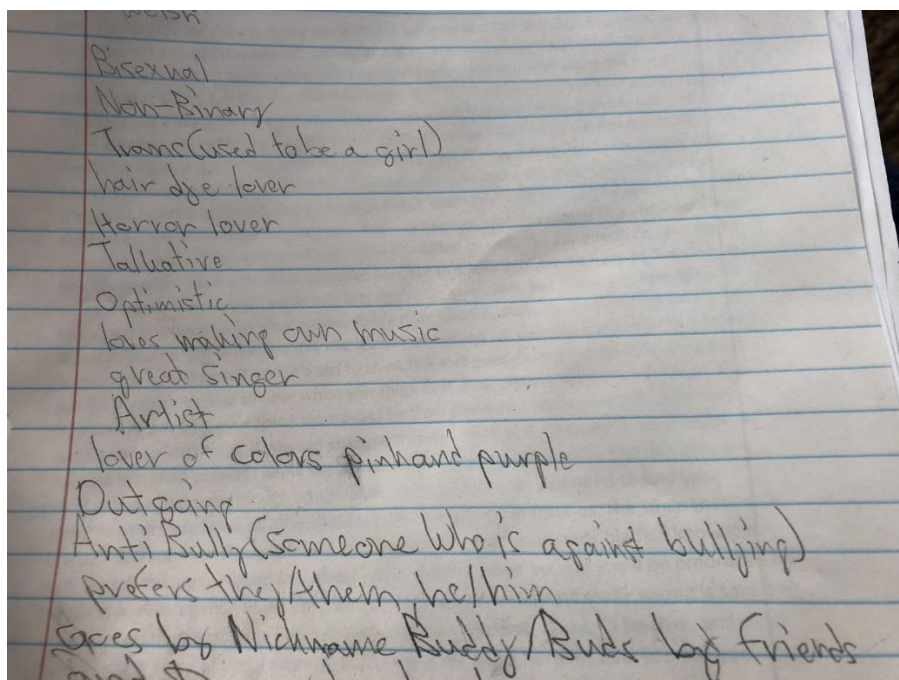 Welsh
Bisexual
Non-Binary
Trans(used to be a girl)
hair dye lover
Horror lover
Talkative
Optimistic
loves making own music
great singer
Artist
lover of colors pink and purple
Outgoing
Anti Bully(someone who is against bullying)
prefers they/them, he/him
Goes by Nickname Buddy/Buds by friends
and